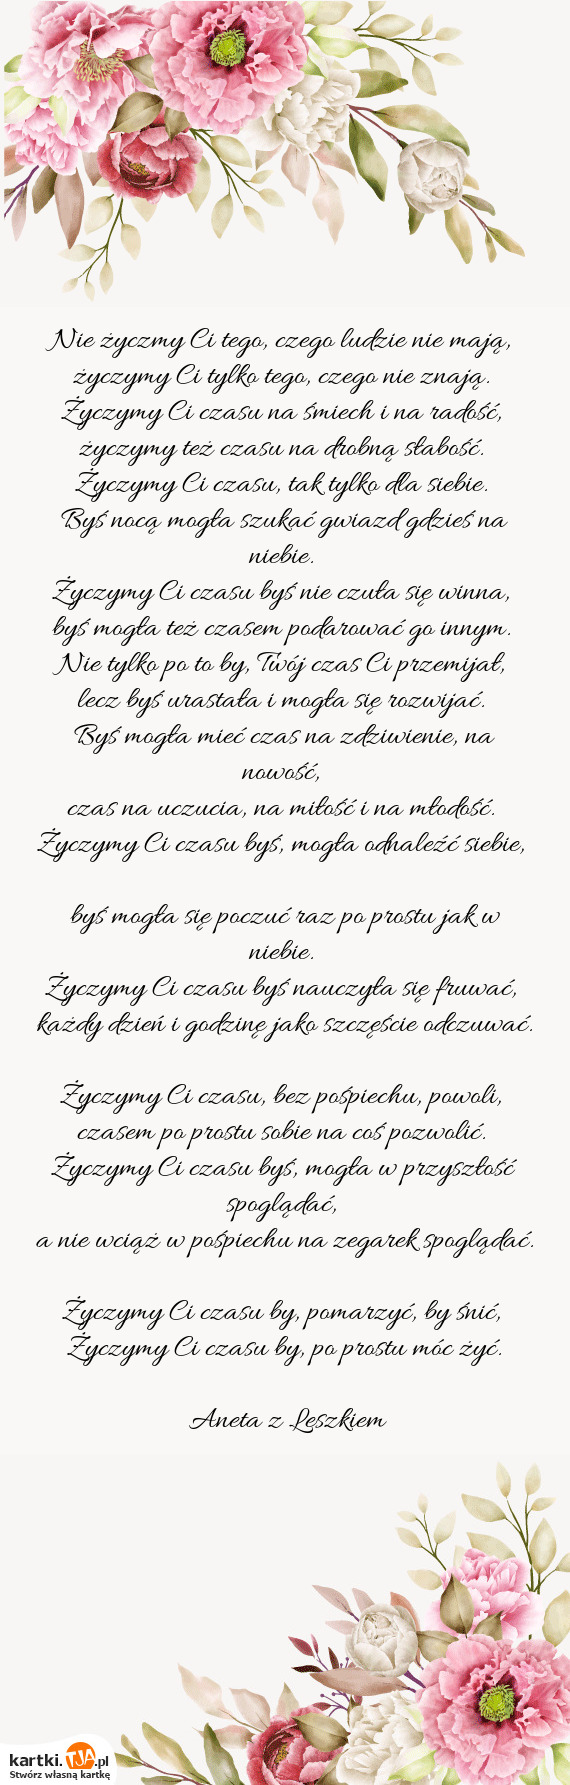 Nie życzmy Ci tego, czego ludzie nie mają,
życzymy Ci tylko tego, czego nie znają.
Życzymy Ci czasu na śmiech i na radość,
życzymy też czasu na drobną słabość.
Życzymy Ci czasu, tak tylko dla siebie.
Byś nocą mogła szukać gwiazd gdzieś na
niebie.
Życzymy Ci czasu byś nie czuła się winna,
byś mogła też czasem podarować go innym.
Nie tylko po to by, Twój czas Ci przemijał,
lecz byś urastała i mogła się rozwijać.
Byś mogła mieć czas na zdziwienie, na
nowość,
czas na uczucia, na miłość i na młodość.
Życzymy Ci czasu byś, mogła odnaleźć siebie,
byś mogła się poczuć raz po prostu jak w
niebie.
Życzymy Ci czasu byś nauczyła się fruwać,
każdy dzień i godzinę jako szczęście odczuwać.
Życzymy Ci czasu, bez pośpiechu, powoli,
czasem po prostu sobie na coś pozwolić.
Życzymy Ci czasu byś, mogła w przyszłość
spoglądać,
a nie wciąż w pośpiechu na zegarek spoglądać.
Życzymy Ci czasu by, pomarzyć, by śnić,
Życzymy Ci czasu by, po prostu móc żyć.
Aneta z Leszkiem
kartki.TJA.pl
Stwórz własną kartkę